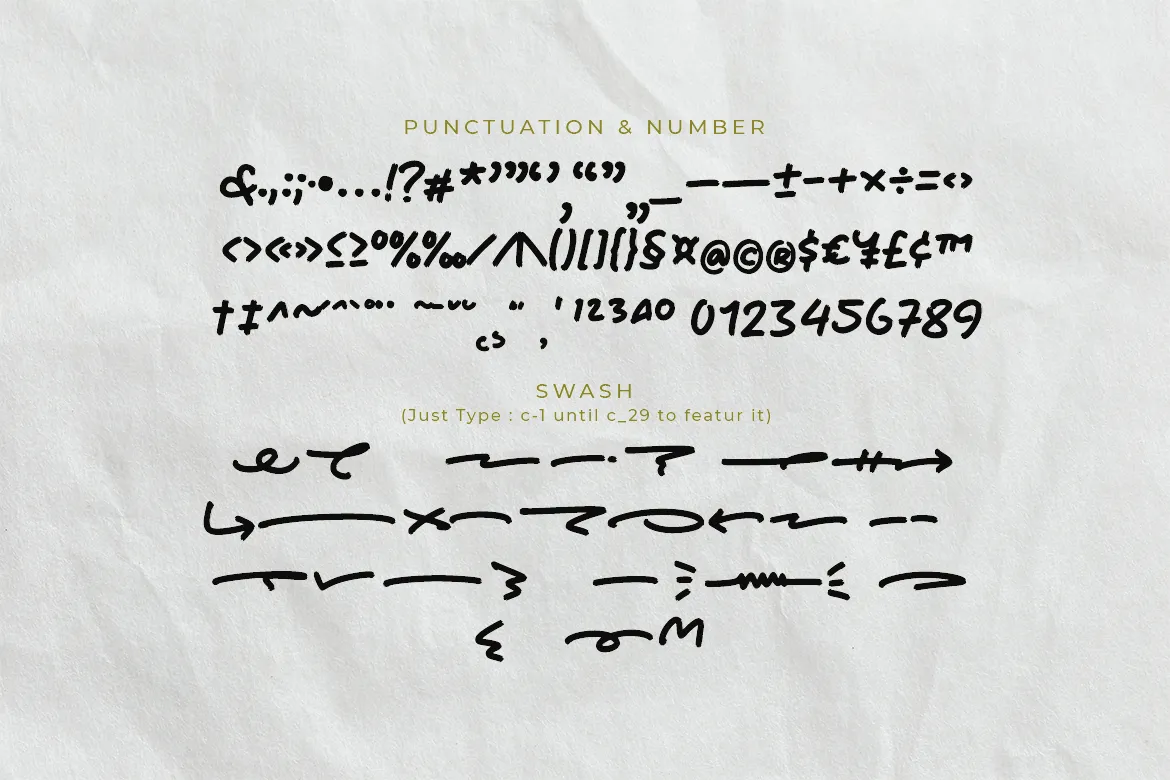 PUNCTUATION & NUMBER
&.,:;·•...!?#*'"",‘’,“”„_—―±−+×÷=<>
<>«»≤≥°%‰/∧\()[]{}§¤@©®$€¥£¢™
†‡^~
123AO 0123456789
SWASH
(Just Type : c-1 until c_29 to featur it)